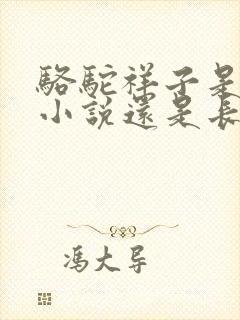 駱駝祥子是
小說還是長
馮大导